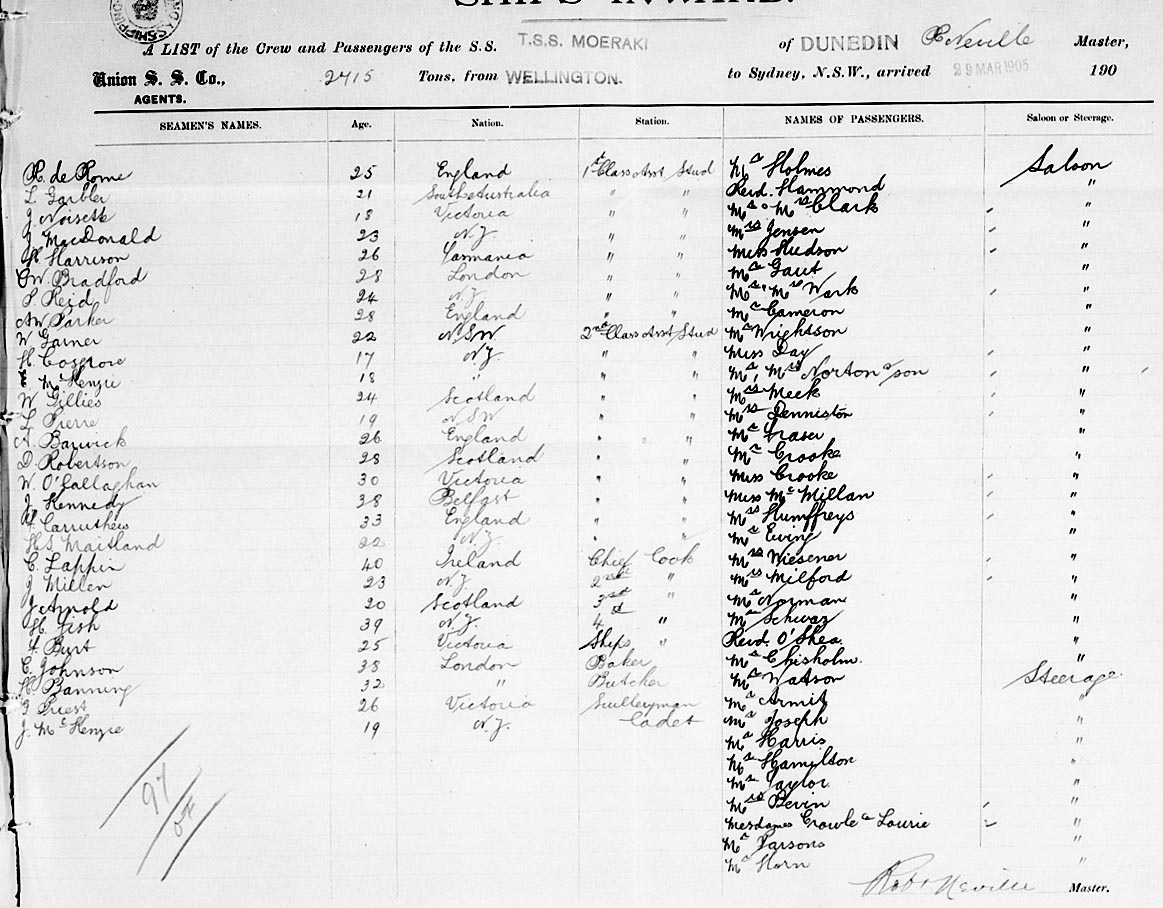 SHIPS INWARD.
A LIST of the Crew and Passengers of the S.S. T.S.S. MOERAKI of DUNEDIN R Neville Master,
Union S. S. Co., 2715 Tons, from WELLINGTON. to Sydney, N.S.W., arrived 29 MAR 1905 190
AGENTS.
SEAMEN'S NAMES. Age. Nation. Station. NAMES OF PASSENGERS. Saloon or Steerage.
R. de Rome 25 England 1st Class Asst Stud Mr Holmes Saloon
L. Garbler 21 South Australia " " Revd. Hammond "
J Noisett 18 Victoria " " Mr & Mrs Clark "
J. MacDonald 23 N.Z. " " Mrs Jensen "
H Harrison 26 Tasmania " " Miss Hudson "
W. Bradford 28 London " " Mr Gaut "
S Reid 24 N.Z. " " Mr " Mrs Work "
AW Parker 28 England " " Mr Cameron "
W Garner 22 N.S.W 2nd Class Asst Stud Mr Wrightson "
H. Cosgrove 17 N.Z. " " Miss Day "
McKenzie 18 " " " Mr, Mrs Norton & son "
W Gillies 24 Scotland " " Mrs Meek "
L Pierre 19 N.S.W " " Mrs Denniston "
A. Barwick 26 England " " Mr Fraser "
D. Robertson 28 Scotland " " Mr Crooke "
W. O'Callaghan 30 Victoria " " Miss Crooke "
J. Kennedy 38 Belfast " " Miss McMillan "
Carruthers 33 England " " Mrs Humffreys "
H.S. Maitland 22 N.Z. " " Mr Ewing "
C. Lappin 40 Ireland Chief Cook Mrs Wiesener "
J Millen 23 N.Z. 2nd " Mrs Milford "
J Arnold 20 Scotland 3rd " Mr Norman "
H. Fish 39 N.Z. 4th " Mr Schwaz "
F. Burt 25 Victoria Ships " Revd. O'Shea "
C. Johnson 38 London Baker Mr Chisholm. "
H Banning 32 " Butcher Mr Watson Steerage.
Priest 26 Victoria Sculleryman Mr Armit "
J. McKenzie 19 N.Z. Cadet Mr Joseph "
Mr Harris "
Mr Hamilton "
Mr Taylor "
Mrs Bevin "
Mesdames Crowle & Lourie "
Mr Parsons "
Mr Horn "
97
Robt Neville Master.